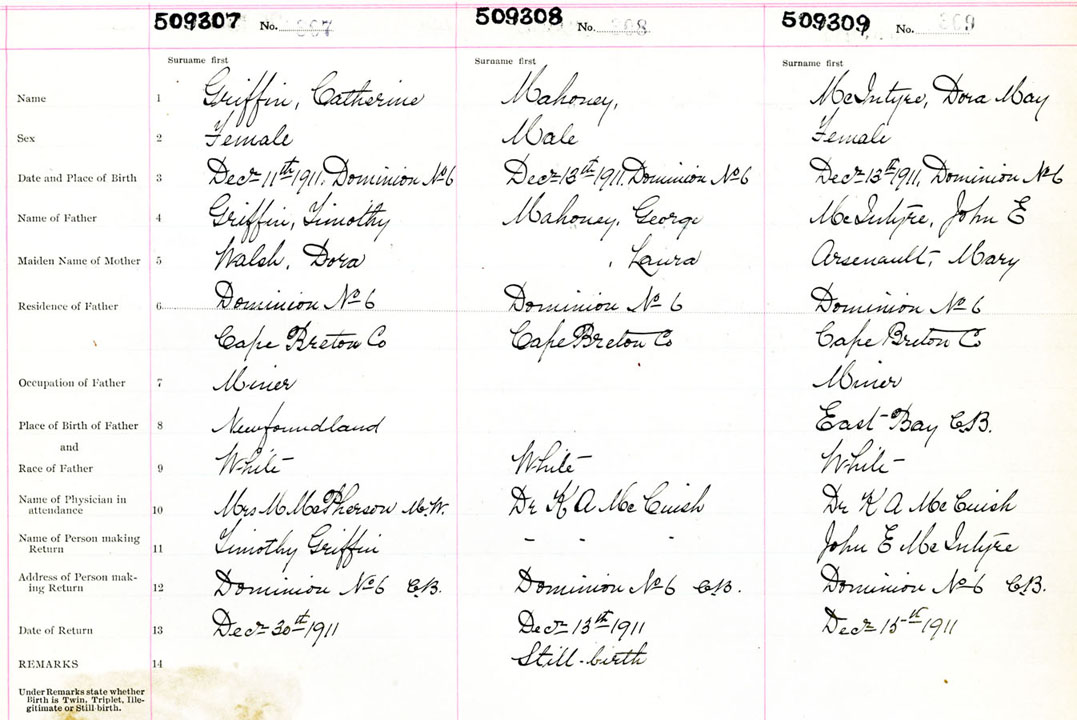 509307 No. 307 509308 No. 308 509309 No. 309
Surname first Surname first Surname first
Name 1 Griffin, Catherine Mahoney, McIntyre, Dora May
Sex 2 Female Male Female
Date and Place of Birth 3 Decr 11th 1911, Dominion No 6 Decr 13th 1911, Dominion No 6 Decr 13th 1911, Dominion No 6
Name of Father 4 Griffin, Timothy Mahoney, George McIntyre, John E
Maiden Name of Mother 5 Walsh, Dora , Laura Arsenault, Mary
Residence of Father 6 Dominion No 6 Dominion No 6 Dominion No 6
Cape Breton Co Cape Breton Co Cape Breton Co
Occupation of Father 7 Miner Miner
Place of Birth of Father 8 Newfoundland East Bay C.B.
and
Race of Father 9 White White White
Name of Physician in
attendance 10 Mrs M McPherson M.W. Dr K A McCuish Dr K A McCuish
Name of Person making
Return 11 Timothy Griffin - - - John E McIntyre
Address of Person mak-
ing Return 12 Dominion No 6 C.B. Dominion No 6 C.B. Dominion No 6 C.B.
Date of Return 13 Decr 30th 1911 Decr 13th 1911 Decr 15th 1911
REMARKS 14 Still-birth
Under Remarks state whether
Birth is Twin, Triplet, Ille-
gitimate or Still birth.